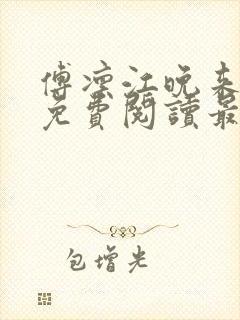 傅凛江晚来
免費閱讀最
包增光